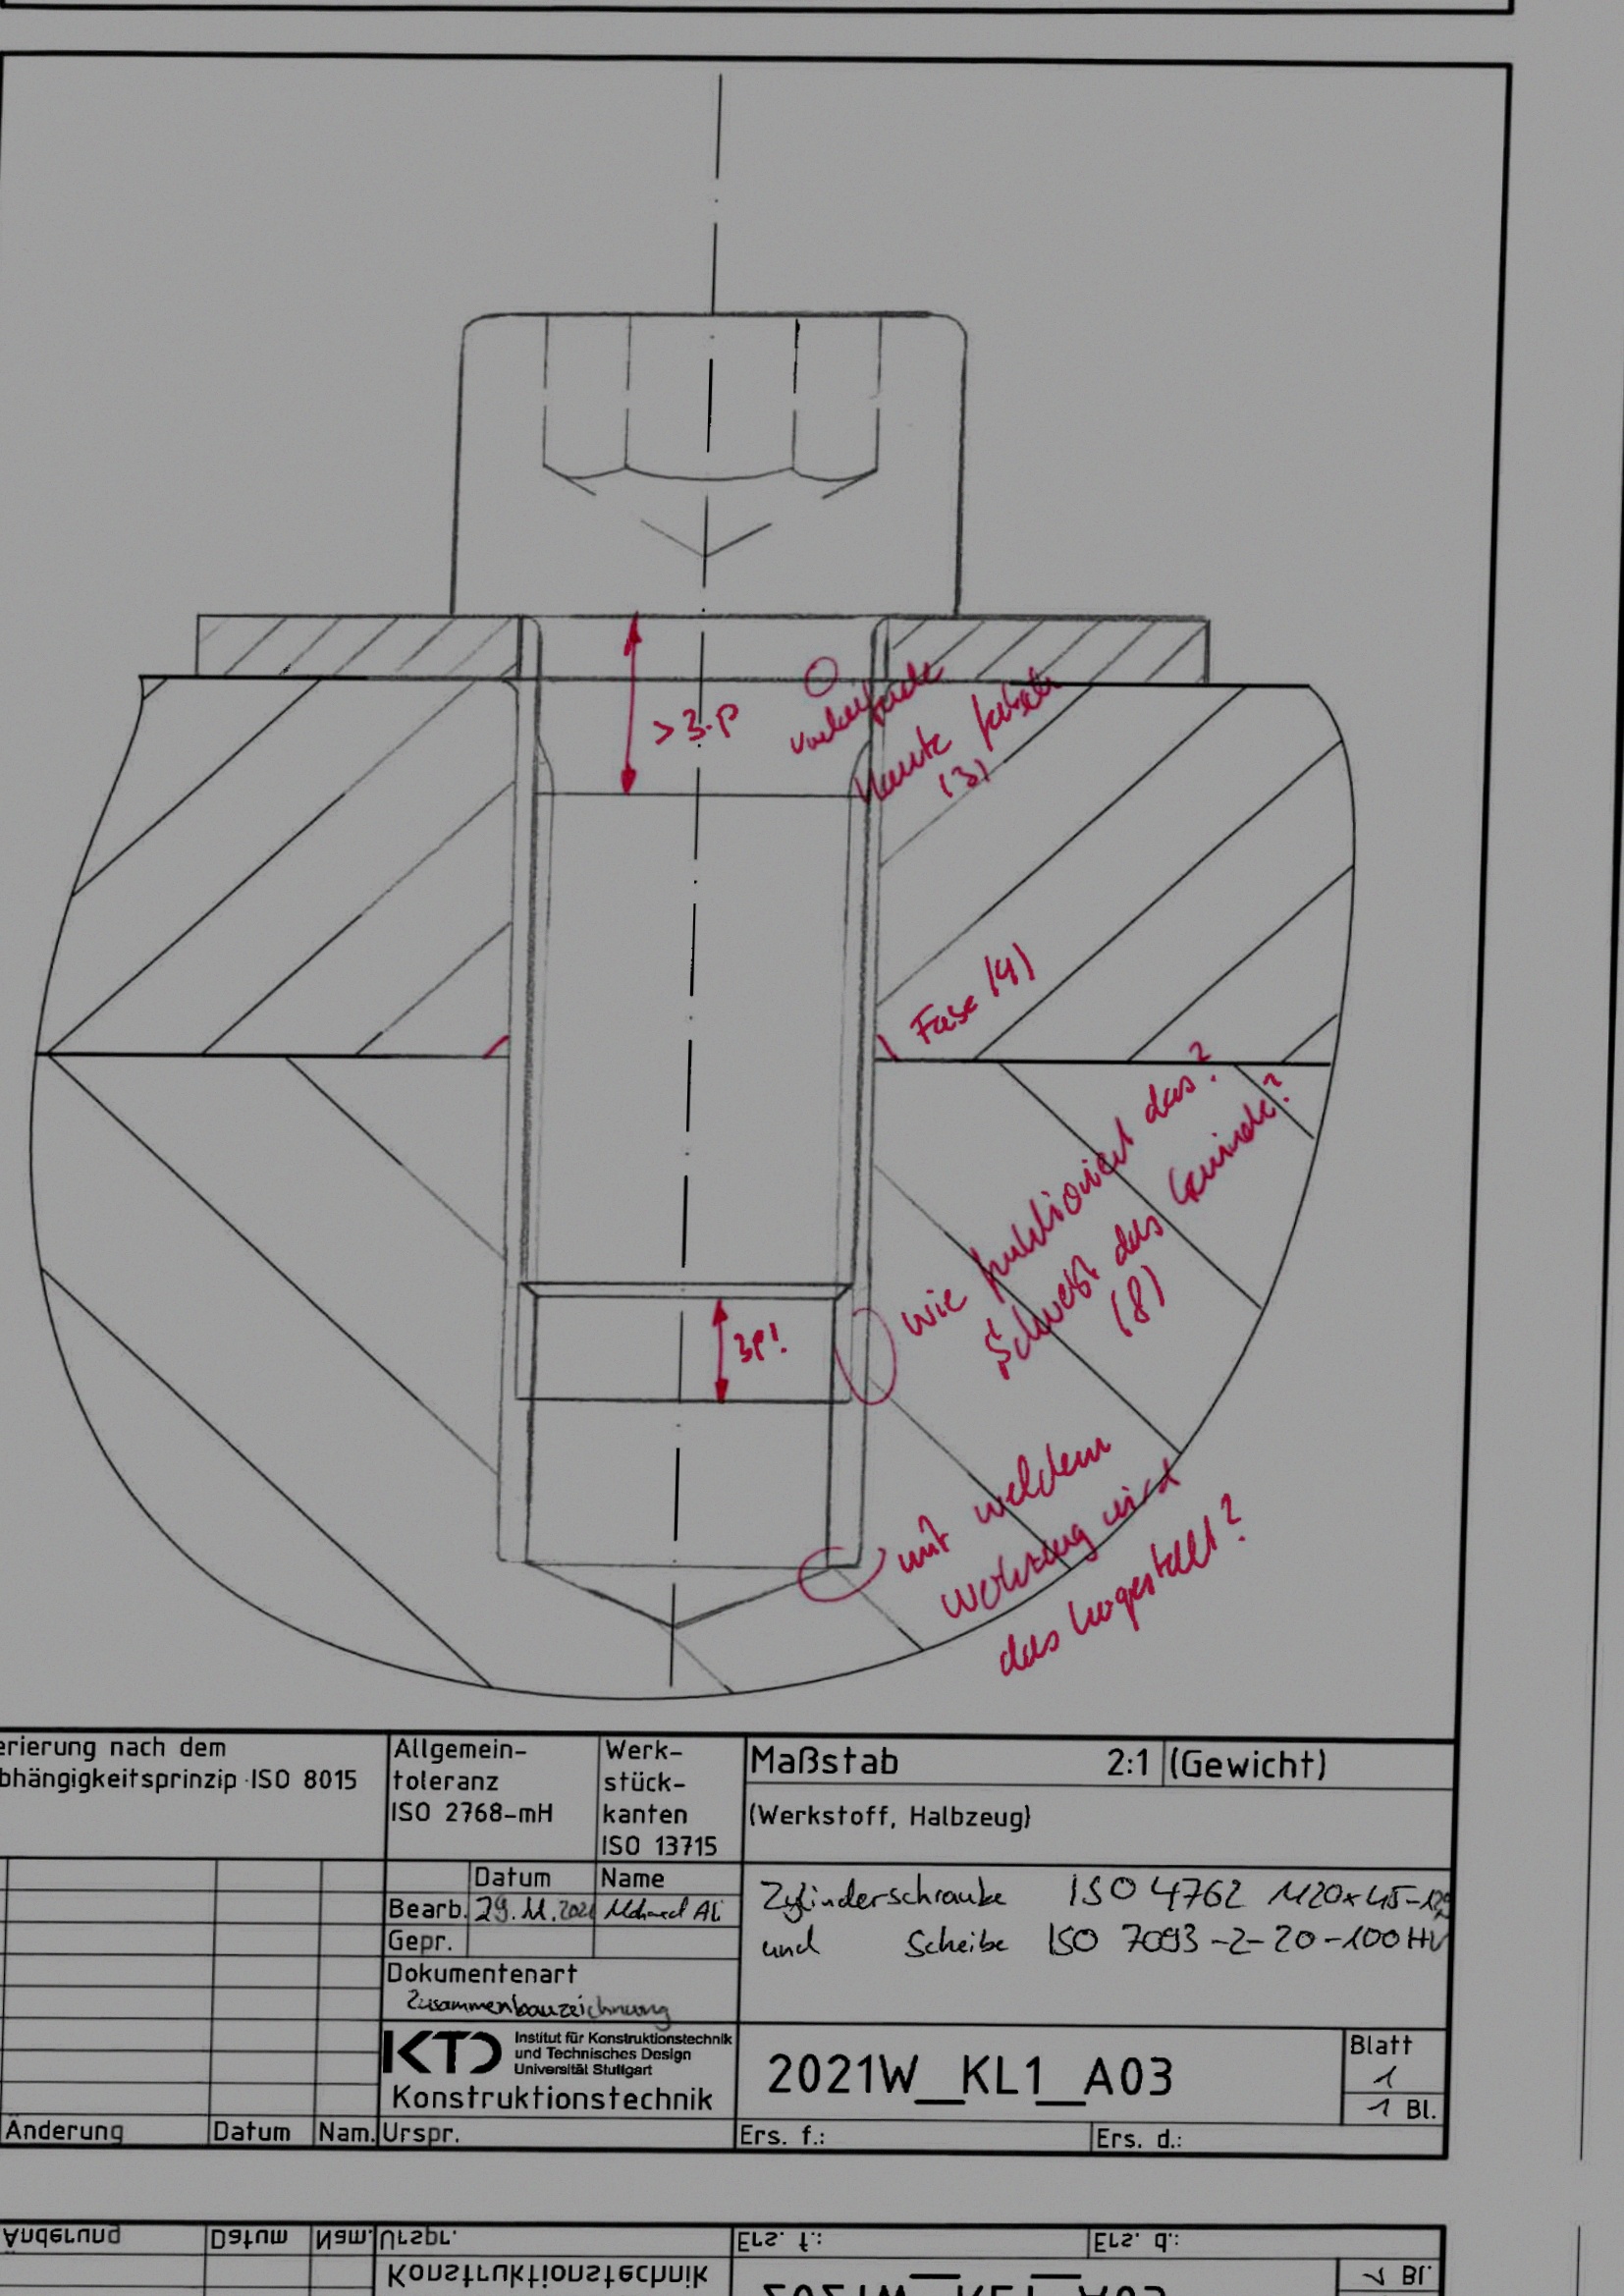 > 3.P
verlaufende
Kante falsch
(3)
Fase (4)
wie funktioniert das?
Schweißt das Gewinde?
(8)
3P!
mit welchem
Werkzeug wird
das hergestellt?
erierung nach dem
bhängigkeitsprinzip ISO 8015
Allgemein-
toleranz
ISO 2768-mH
Werk-
stück-
kanten
ISO 13715
Maßstab 2:1 (Gewicht)
(Werkstoff, Halbzeug)
Datum Name
Bearb. 29.11.2021
Gepr.
Dokumentenart
Zusammenbauzeichnung
Zylinderschraube ISO 4762 M20x45-12.9
und Scheibe ISO 7093-2-20-100HV
KTD Institut für Konstruktionstechnik
und Technisches Design
Universität Stuttgart
Konstruktionstechnik
2021W_KL1_A03
Blatt
1
1 Bl.
Änderung Datum Nam. Urspr. Ers. f.: Ers. d.:
Änderung Datum Nam. Urspr. Ers. f.: Ers. d.:
Konstruktionstechnik
1 Bl.
2021W_KL1_A03